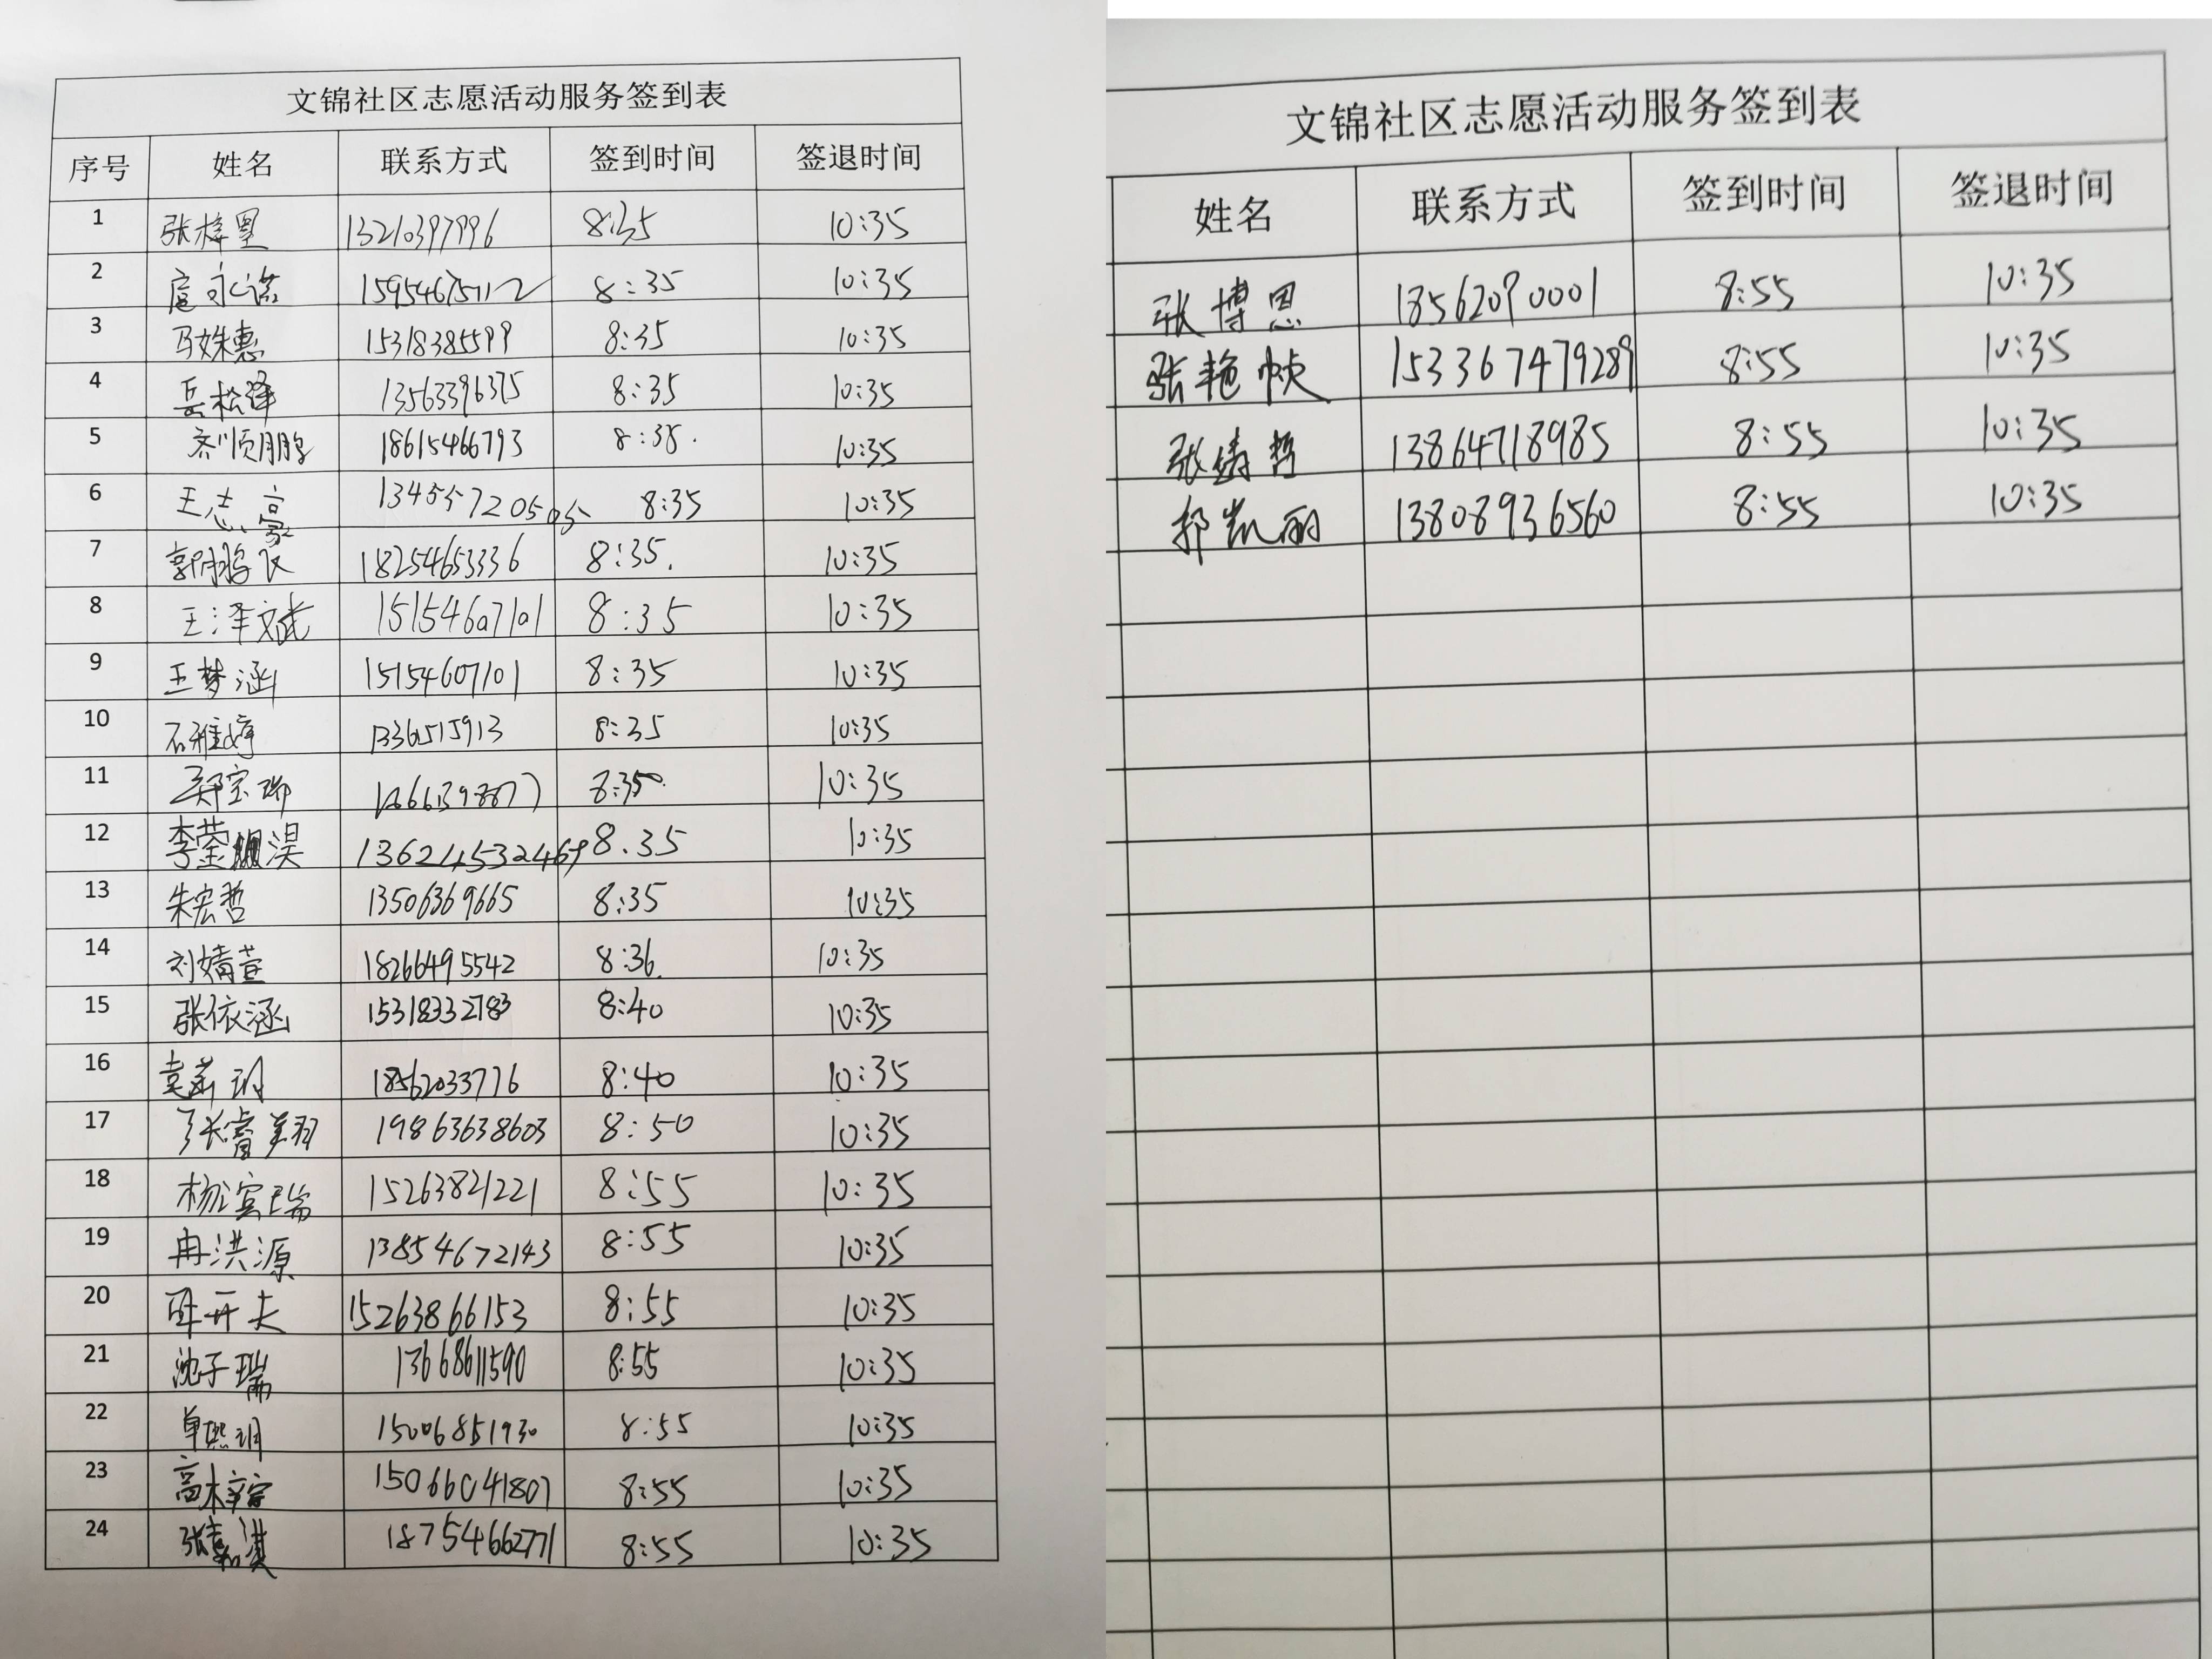 文锦社区志愿活动服务签到表
序号 姓名 联系方式 签到时间 签退时间
1 张梓墨 13210397996 8:35 10:35
2 扈永诺 15954675112 8:35 10:35
3 马姝惠 15318385599 8:35 10:35
4 岳松泽 13563396375 8:35 10:35
5 齐顺鹏 18615466793 8:38. 10:35
6 王志豪 13455720505 8:35 10:35
7 郭鹏飞 18254653336 8:35. 10:35
8 王泽文 15154607101 8:35 10:35
9 王梦涵 15154607101 8:35 10:35
10 石雅婷 8:35 10:35
11 郑宝瑞 8:35 10:35
12 李莹淏 8.35 10:35
13 朱宏哲 13506369665 8:35 10:35
14 刘婧萱 18266495542 8:36. 10:35
15 张依涵 15318332783 8:40 10:35
16 袁茅玥 18562033776 8:40 10:35
17 张睿翔 19863638603 8:50 10:35
18 杨滨瑞 15263821221 8:55 10:35
19 冉洪源 13854672143 8:55 10:35
20 15263866153 8:55 10:35
21 沈子瑞 13668611590 8:55 10:35
22 单熙玥 15006851930 8:55 10:35
23 高梓容 15066041807 8:55 10:35
24 18754662771 8:55 10:35
文锦社区志愿活动服务签到表
姓名 联系方式 签到时间 签退时间
张博恩 18562090001 8:55 10:35
张艳帧 153367479289 8:55 10:35
张婧哲 13864718985 8:55 10:35
郑凯丽 13808936560 8:55 10:35